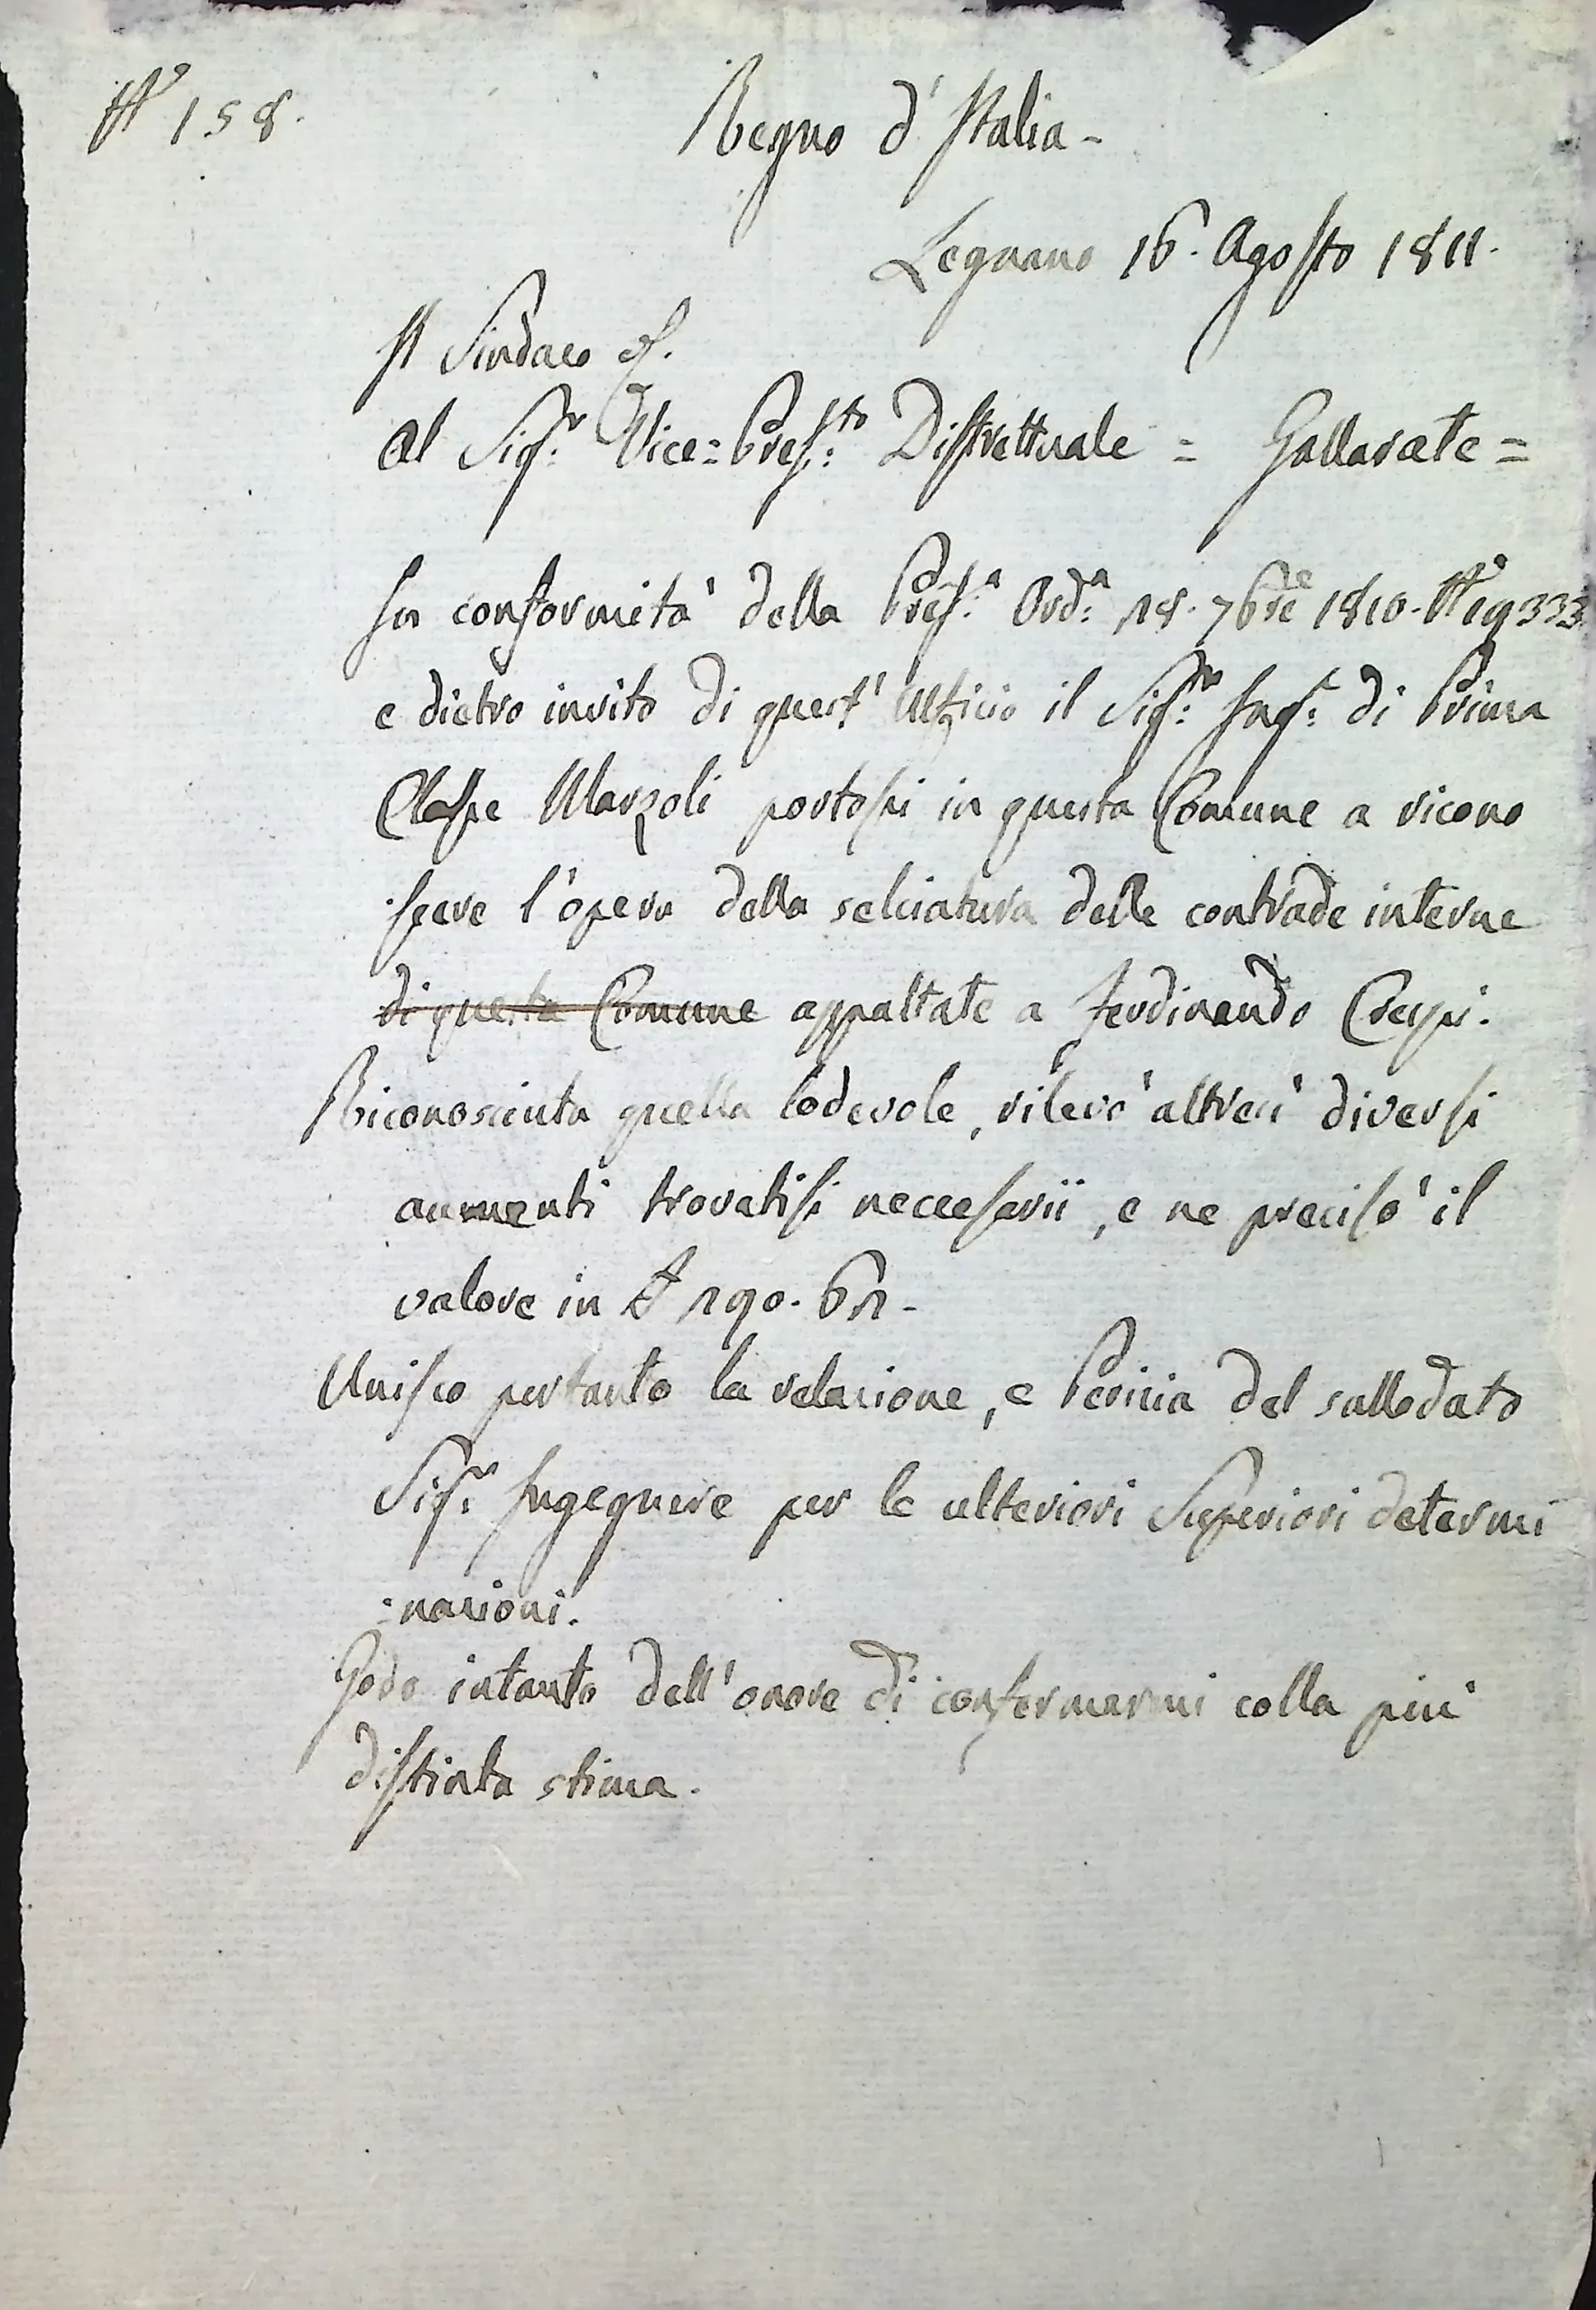 N° 158.
Regno d'Italia -
Legnano 16. Agosto 1811.
Il Sindaco
Al Sig.r Vice= Pref:to Distrettuale = Gallarate =
In conformità della Pref:a Ord:a 18. 7bre 1810. N° 19333
e dietro invito di quest'Ufficio il Sig:r Ing:r di Prima
Classe Marzoli portossi in questa Comune a ricono
scere l'opera della selciatura delle contrade interne
di questa Comune appaltate a Ferdinando Crespi.
Riconosciuta quella lodevole, rilevò altresì diversi
aumenti trovatisi necessarii, e ne precisò il
valore in £ 190. 61 -
Unisco pertanto la relazione, e Perizia del sullodato
Sig:r Ingegnere per le ulteriori Superiori determi
:nazioni.
Godo intanto dell'onore di confermarmi colla più
distinta stima.